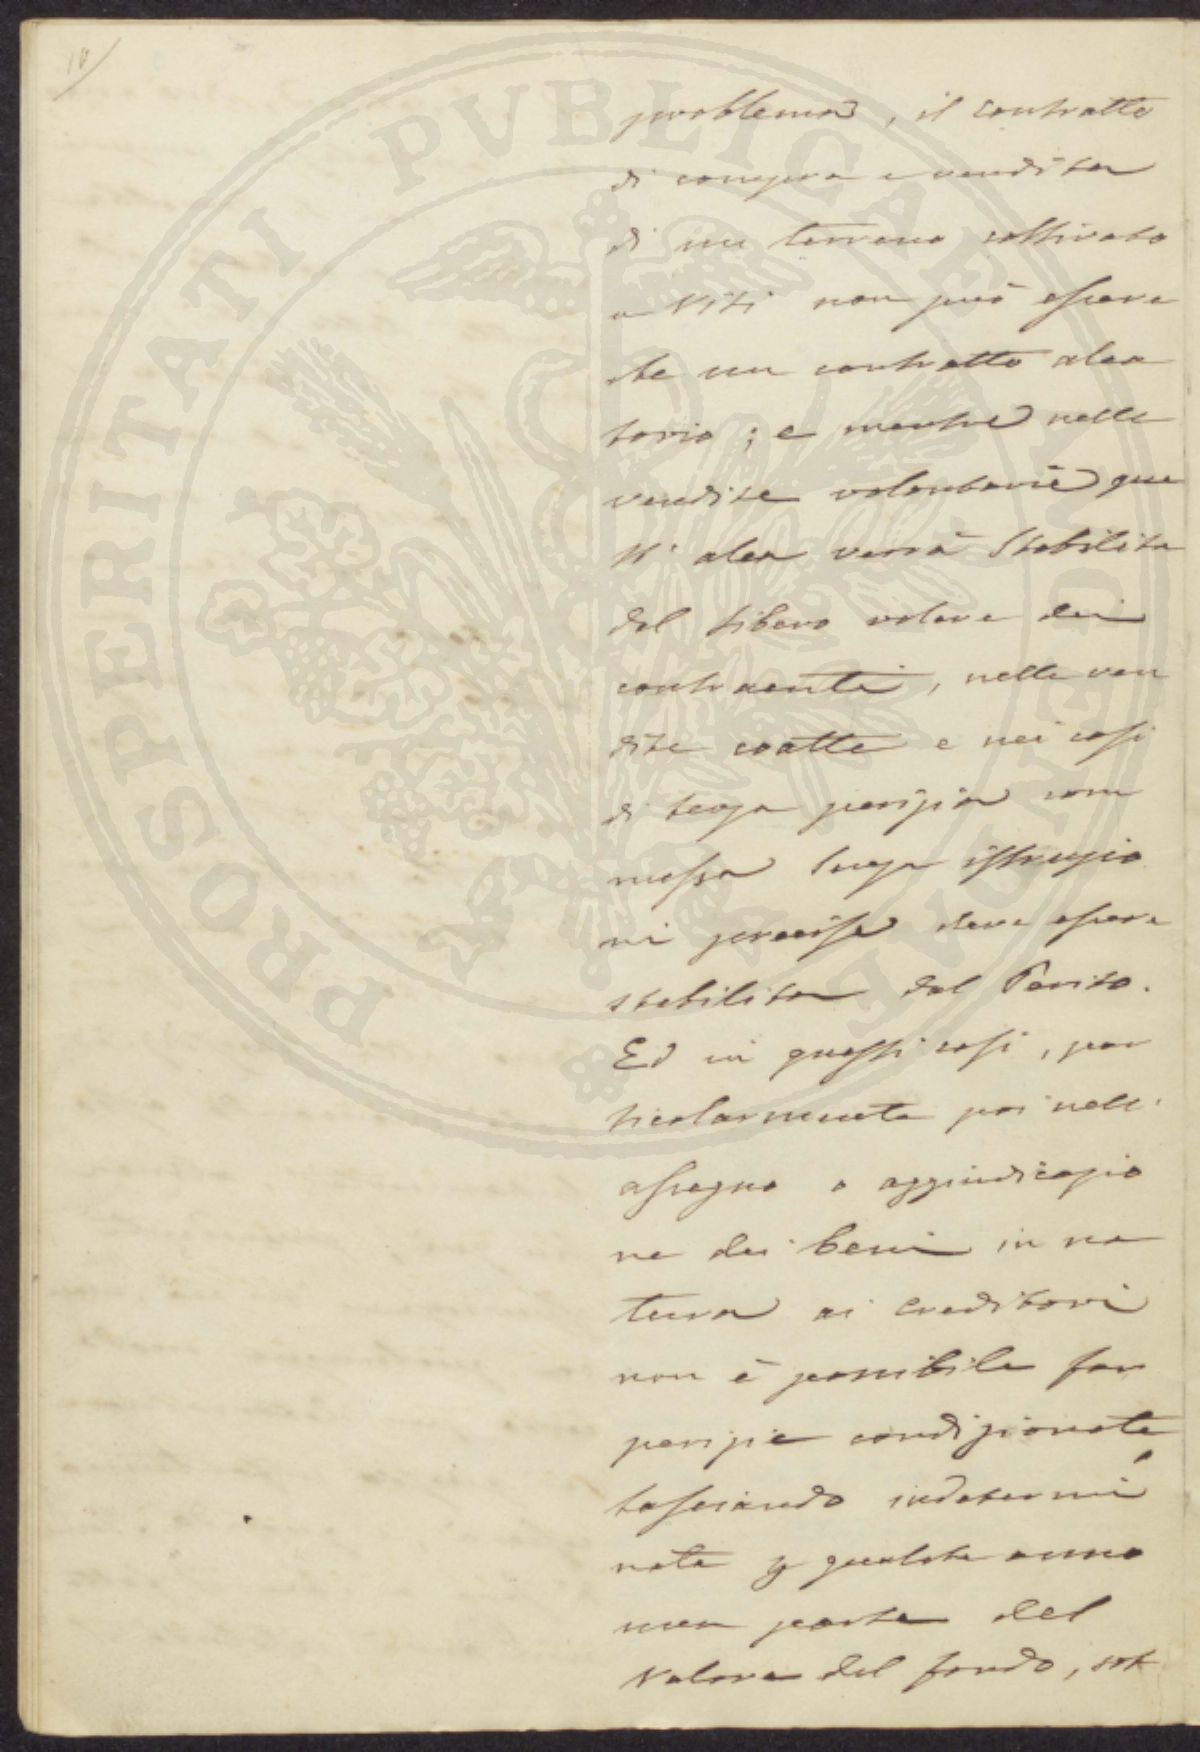 10/
problema, il contratto
di compra e vendita
di un terreno coltivato
a Viti non può essere
che un contratto alea
torio; e mentre nelle
vendite volontarie que
st'alea verrà stabilita
dal libero volere dei
contraenti, nelle ven
dite coatte e nei casi
di terza perizia com
messa senza istruzio
ni precise deve essere
stabilita dal Perito.
Ed in questi casi, par
ticolarmente poi nell'
assegno o aggiudicazio
ne dei beni in na
tura ai creditori
non è possibile far
perizie condizionate
lasciando indetermi
nata p qualche anno
una parte del
Valore del fondo, sot
PROSPERITATI PVBLICAE AVGENDAE